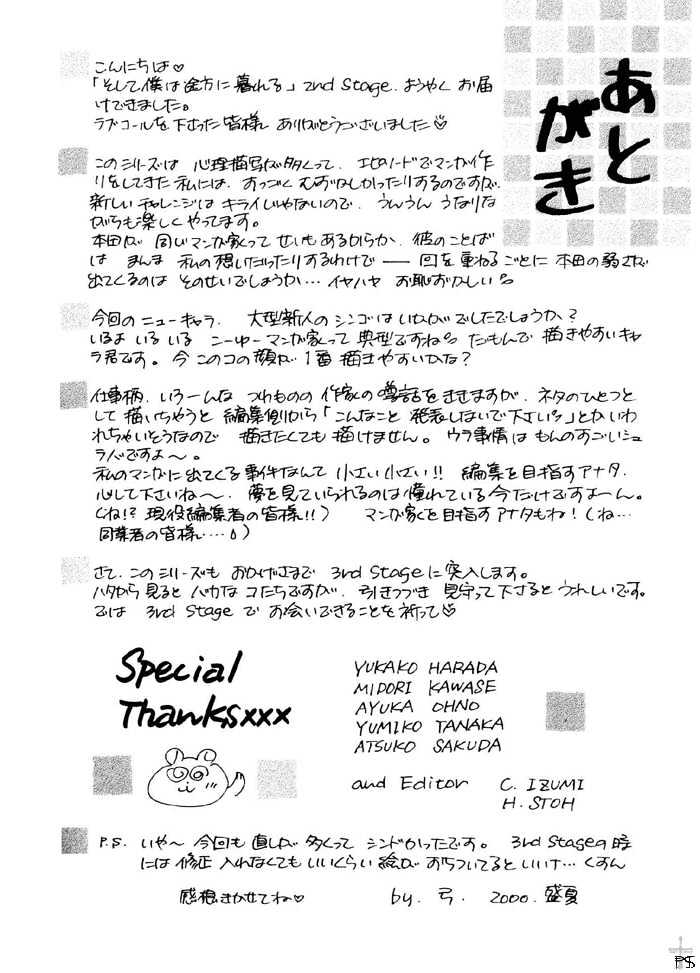 あとがき
こんにちは♡
「そして僕は途方に暮れる」2nd Stage.ようやくお届
けできました。
ラブコールを下さった皆様 ありがとうございました♡
このシリーズは 心理描写が多くって、エピソードでマンガ作
りをしてきた私には、すっごく むずかしかったりするのですが、
新しいチャレンジは キライじゃないので、うんうん うなりな
がらも楽しくやってます。
本田が 同じマンガ家って せいもあるからか、彼のことば
は まんま 私の想いだったりするわけで ── 回を重ねるごとに 本田の弱さが
出てくるのは そのせいでしょうか… イヤハヤ お恥ずかしい
今回のニューキャラ、 大型新人のシンゴはいかがでしたでしょうか?
いるよ いる いる こーゆーマンガ家って 典型ですね だもんで 描きやすいキャ
ラ君です。今 このコの顔が 1番 描きやすいかな?
仕事柄、いろーんな つわものの 作家の噂話をききますが、ネタのひとつと
して 描いちゃうと 編集側から「こんなこと 発表しないで下さい」とかいわ
れちゃいそうなので 描きたくても 描けません。ウラ事情は ものすごいシュ
ラバですよ〜。
私のマンガに出てくる事件なんて 小さい小さい!! 編集を目指すアナタ、
心して下さいね〜、夢を見ていられるのは 憧れている今だけですよーん。
(ね!? 現役編集者の皆様!!) マンガ家を目指すアナタもね!(ね…
同業者の皆様‥‥)
さて、このシリーズも おかげさまで 3rd Stageに突入します。
ハタから見ると バカなコたちですが、引きつづき 見守って下さるとうれしいです。
では 3rd Stage で お会いできることを祈って♡
Special
Thanksxxx
YUKAKO HARADA
MIDORI KAWASE
AYUKA OHNO
YUMIKO TANAKA
ATSUKO SAKUDA
and Editor C. IZUMI
H. STOH
P.S. いや〜 今回も 直しが 多くって シンドかったです。 3rd Stageの時
には 修正 入れなくても いいくらい 絵が おちついてるといいけ… くすん
感想きかせてね♡ by. 弓. 2000. 盛夏
P.S.